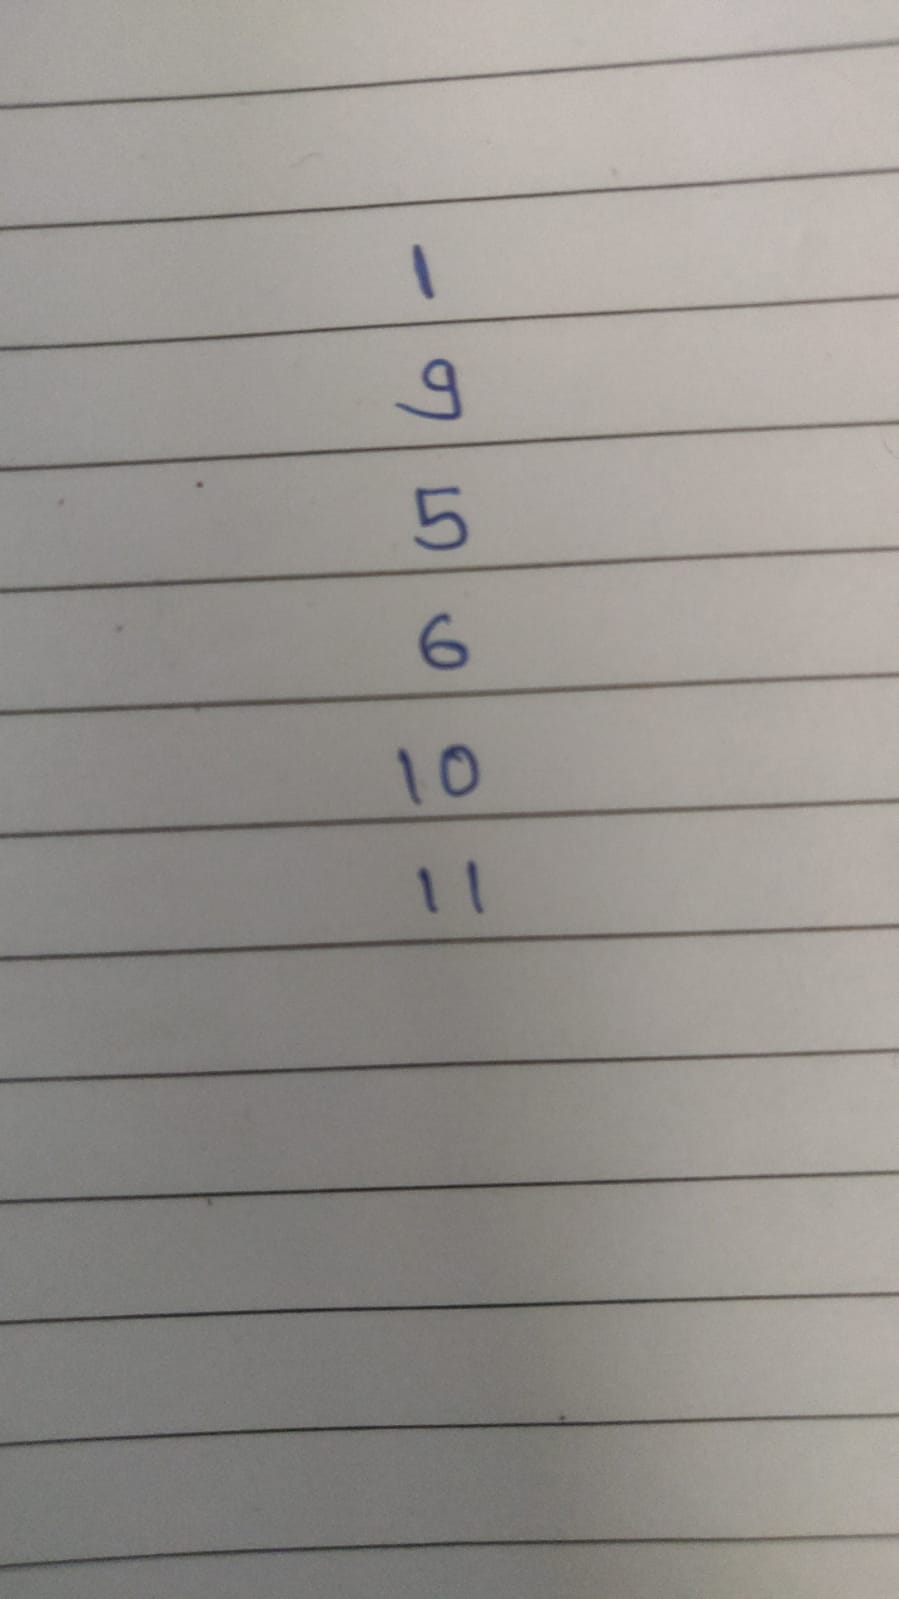 1
9
5
6
10
11